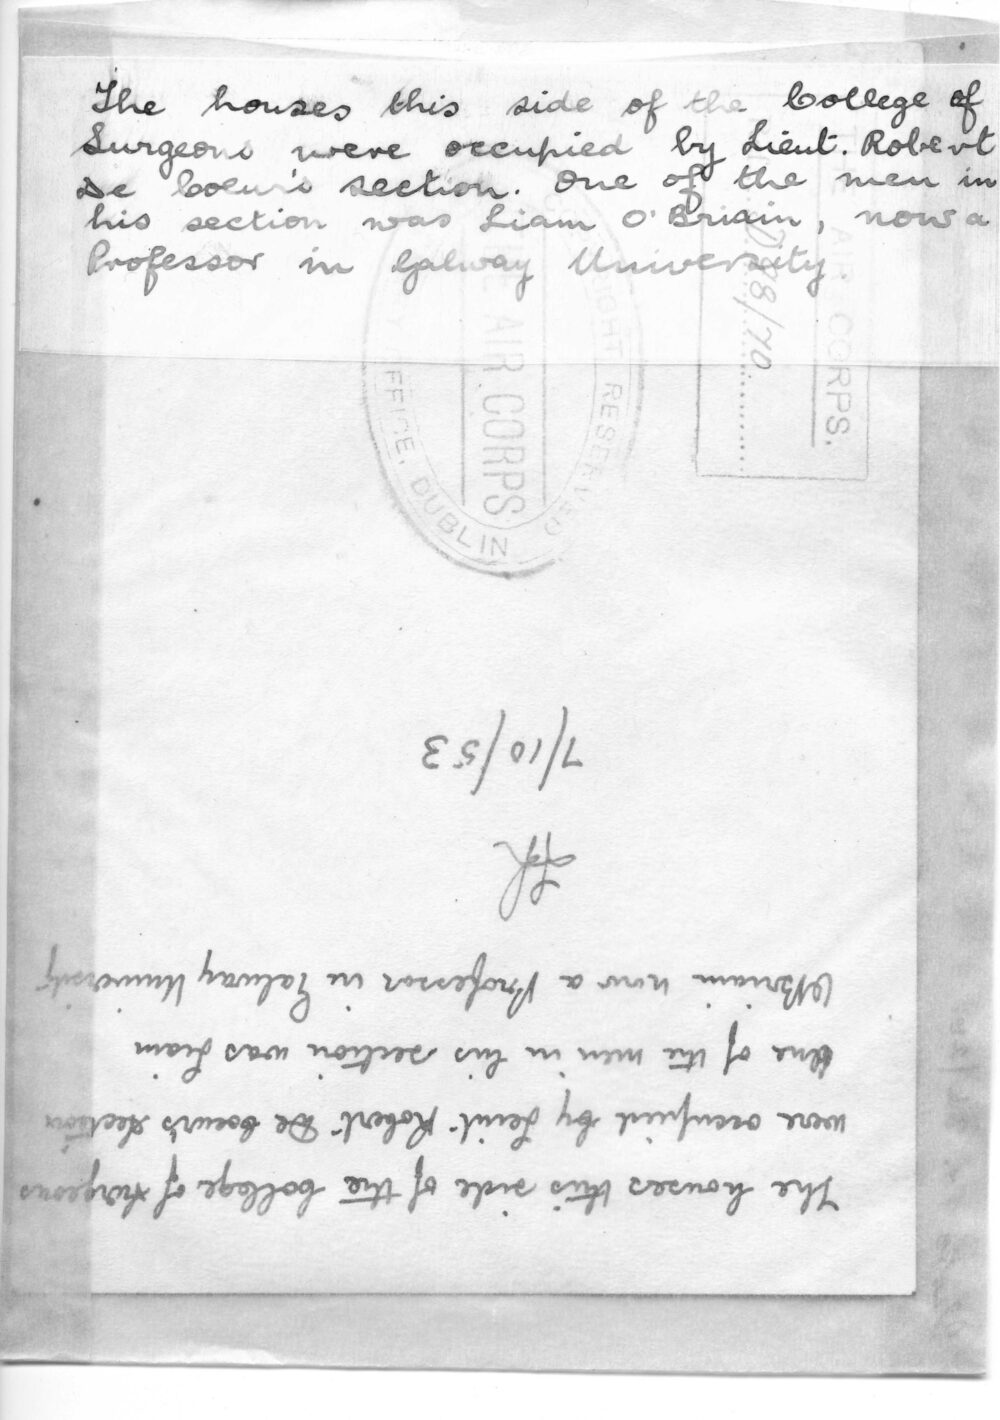 The houses this side of the College of
Surgeons were occupied by Lieut. Robert
De Coeur's section. One of the men in
his section was Liam O'Briain, now a
Professor in Galway University
AIR CORPS.
D.188/70
RIGHT RESERVED
AIR CORPS
OFFICE, DUBLIN
The houses this side of the College of Surgeons
were occupied by Leiut. Robert De Coeur's Section
One of the men in his section was Liam
O'Briain now a Professor in Galway University
7/10/53